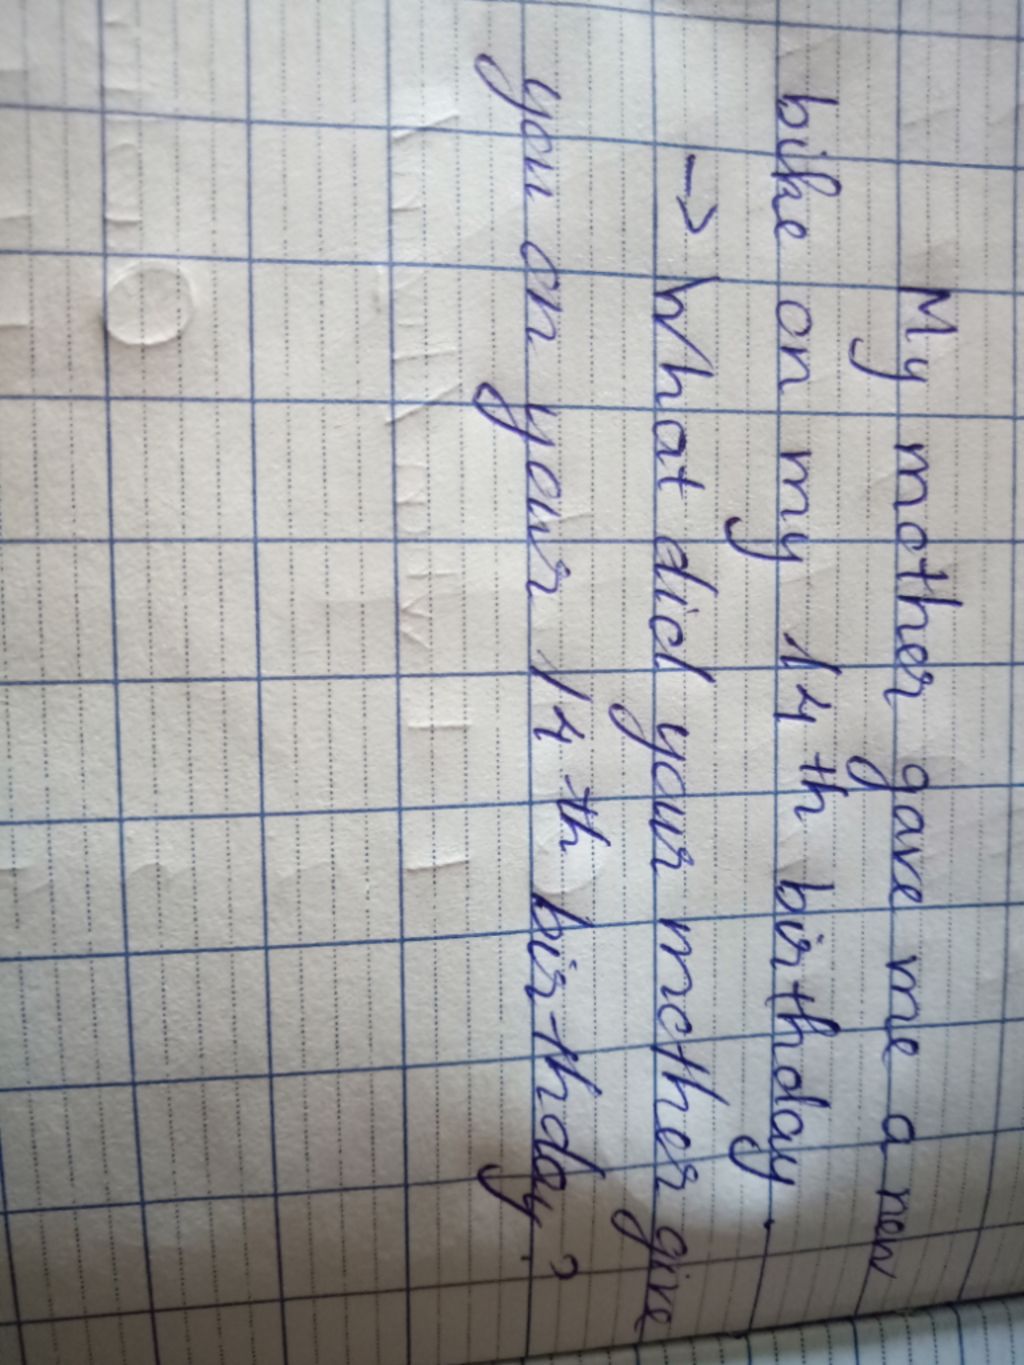 My mother gave me a new
bike on my 14th birthday.
→ What did your mother give
you on your 14th birthday?